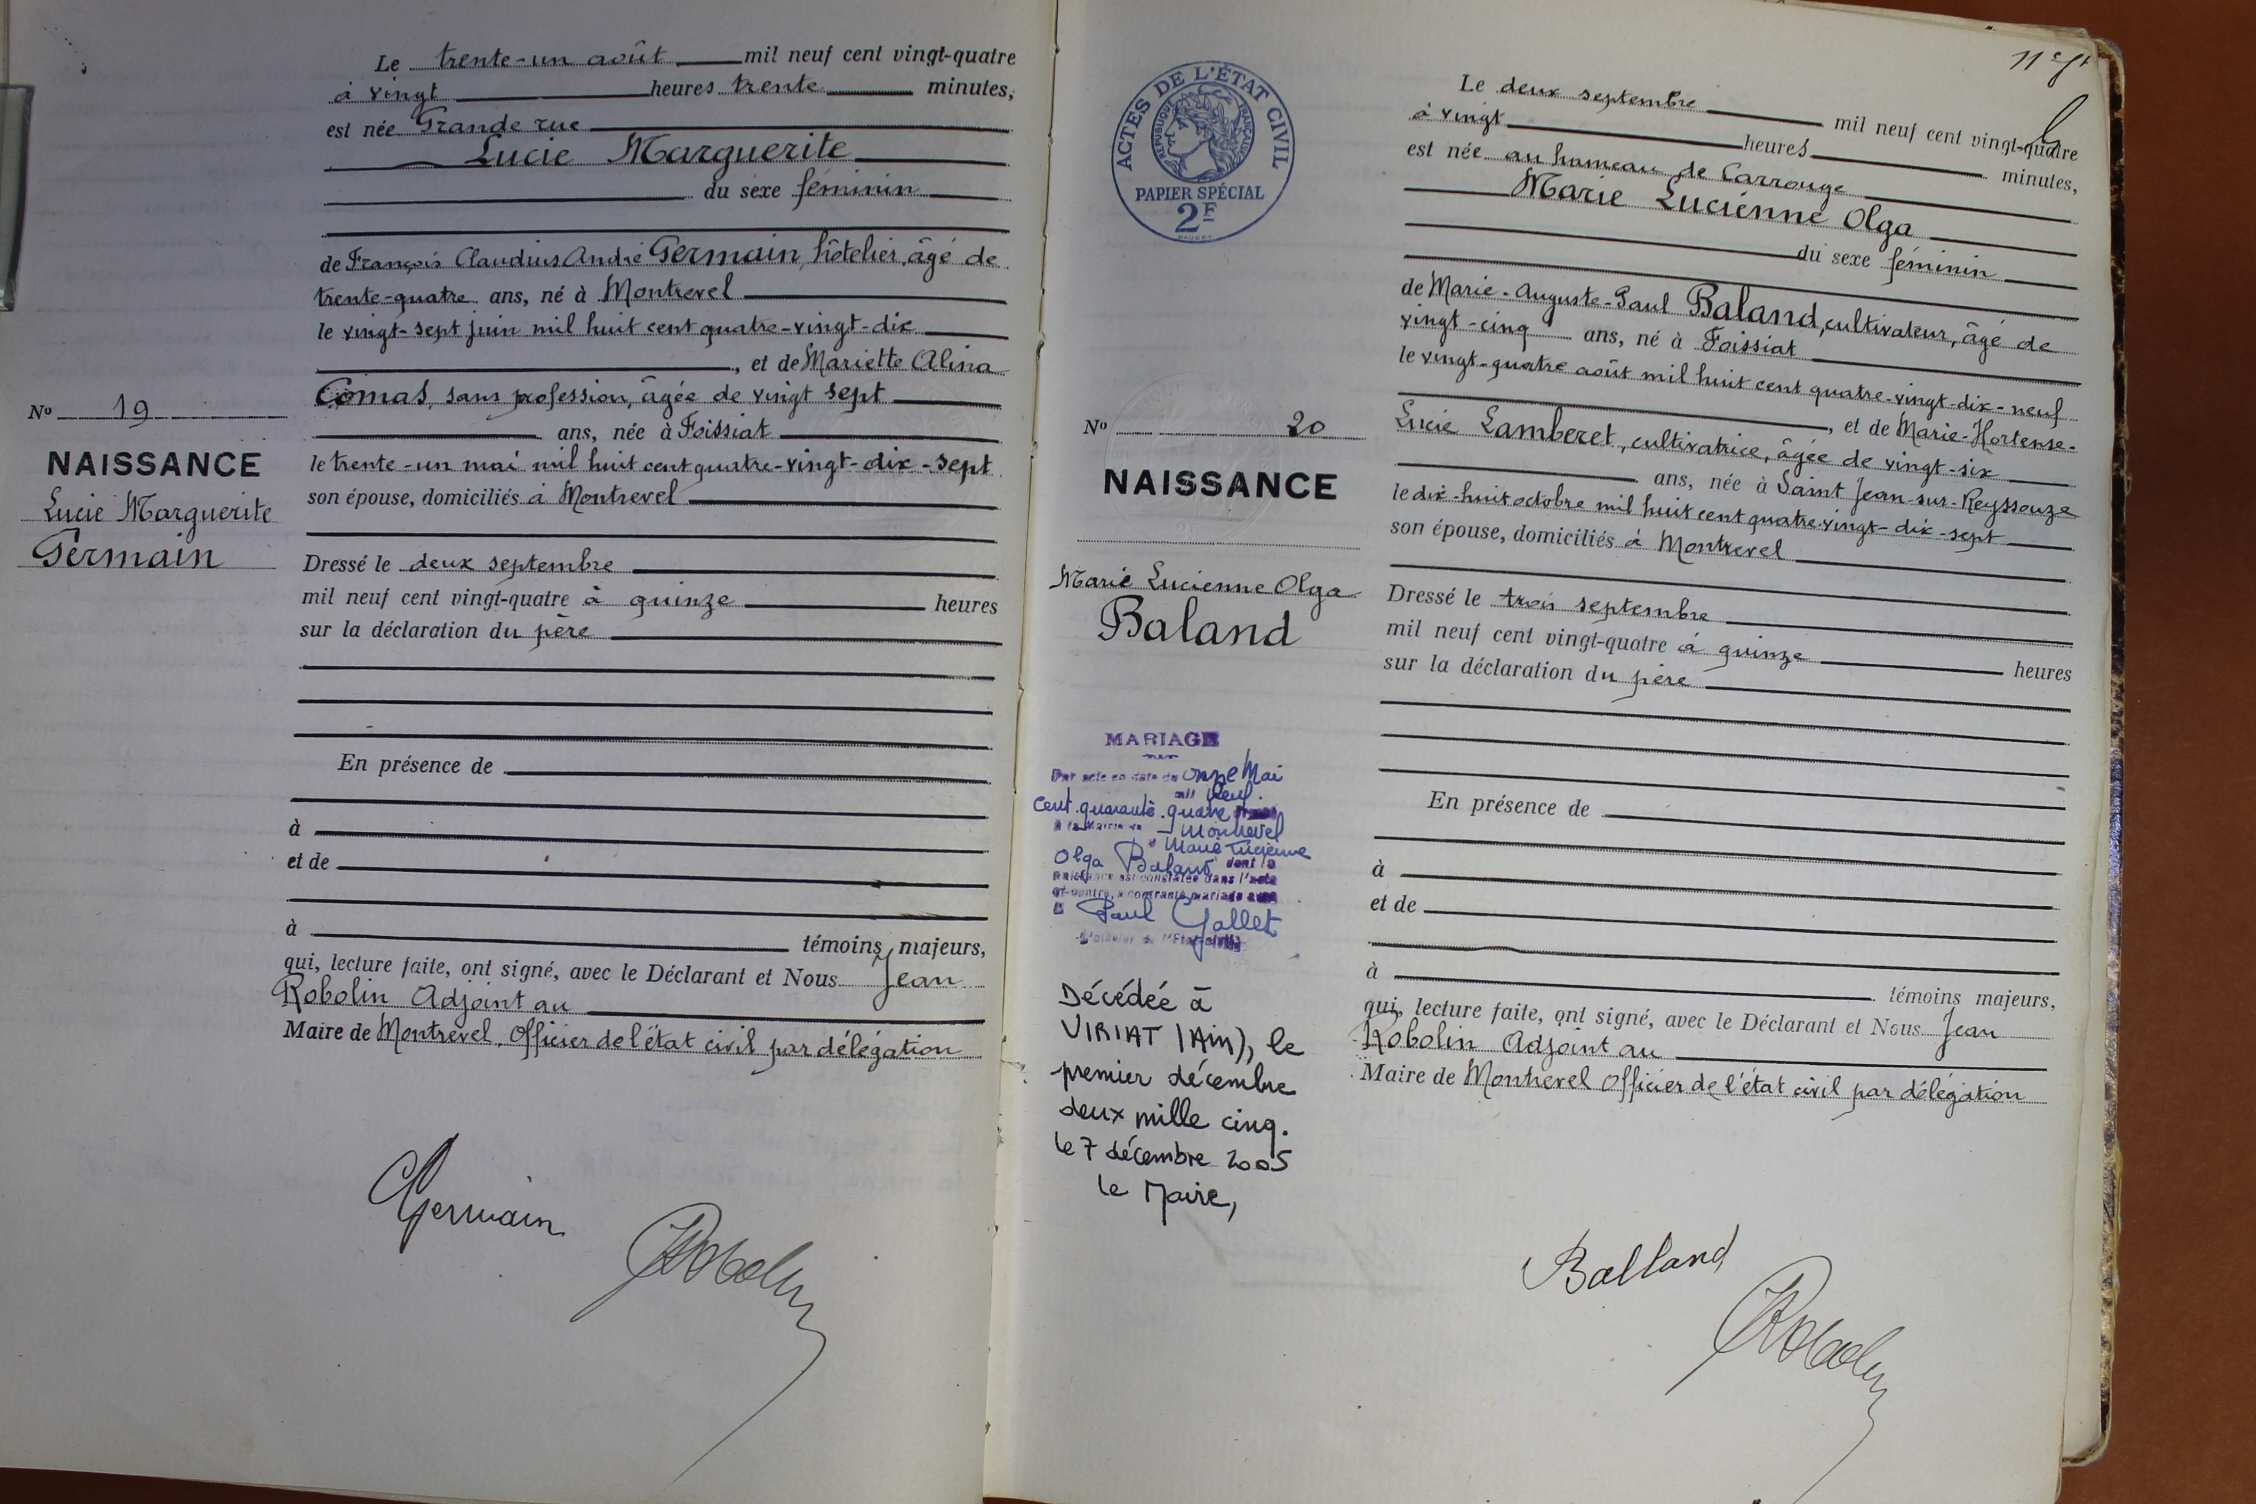 Le trente-un août mil neuf cent vingt-quatre
à vingt heures trente minutes,
est née Grande rue
Lucie Marguerite
du sexe féminin
de François Claudius André Germain, hôtelier, âgé de
trente-quatre ans, né à Montrevel
le vingt-sept juin mil huit cent quatre-vingt-dix
, et de Mariette Alina
Comas, sans profession, âgée de vingt sept
ans, née à Foissiat
le trente-un mai mil huit cent quatre-vingt-dix-sept
son épouse, domiciliés à Montrevel
Nº 19
NAISSANCE
Lucie Marguerite
Germain
Dressé le deux septembre
mil neuf cent vingt-quatre à quinze heures
sur la déclaration du père
En présence de
à
et de
à témoins majeurs,
qui, lecture faite, ont signé, avec le Déclarant et Nous Jean
Robolin Adjoint au
Maire de Montrevel, Officier de l'état civil par délégation
Germain
Robolin
ACTES DE L'ÉTAT CIVIL
RÉPUBLIQUE FRANÇAISE
PAPIER SPÉCIAL
2F
Le deux septembre mil neuf cent vingt-quatre
à vingt heures minutes,
est née au hameau de Carrouge
Marie Lucienne Olga
du sexe féminin
de Marie-Auguste-Paul Baland, cultivateur, âgé de
vingt-cinq ans, né à Foissiat
le vingt-quatre août mil huit cent quatre-vingt-dix-neuf
, et de Marie-Hortense-
Lucie Lamberet, cultivatrice, âgée de vingt-six
ans, née à Saint Jean-sur-Reyssouze
le dix-huit octobre mil huit cent quatre-vingt-dix-sept
son épouse, domiciliés à Montrevel
Nº 20
NAISSANCE
Marie Lucienne Olga
Baland
Dressé le trois septembre
mil neuf cent vingt-quatre à quinze heures
sur la déclaration du père
En présence de
à
et de
à témoins majeurs,
qui, lecture faite, ont signé, avec le Déclarant et Nous Jean
Robolin Adjoint au
Maire de Montrevel Officier de l'état civil par délégation
MARIAGE
Par acte en date du onze Mai
mil neuf
cent quarante quatre
à la Mairie de Montrevel
Marie Lucienne
Olga Baland dont la
naissance est constatée dans l'acte
ci-contre, a contracté mariage avec
Paul Gallet
L'officier de l'Etat civil
Décédée à
VIRIAT (Ain), le
premier décembre
deux mille cinq.
le 7 décembre 2005
le Maire,
Balland
Robolin